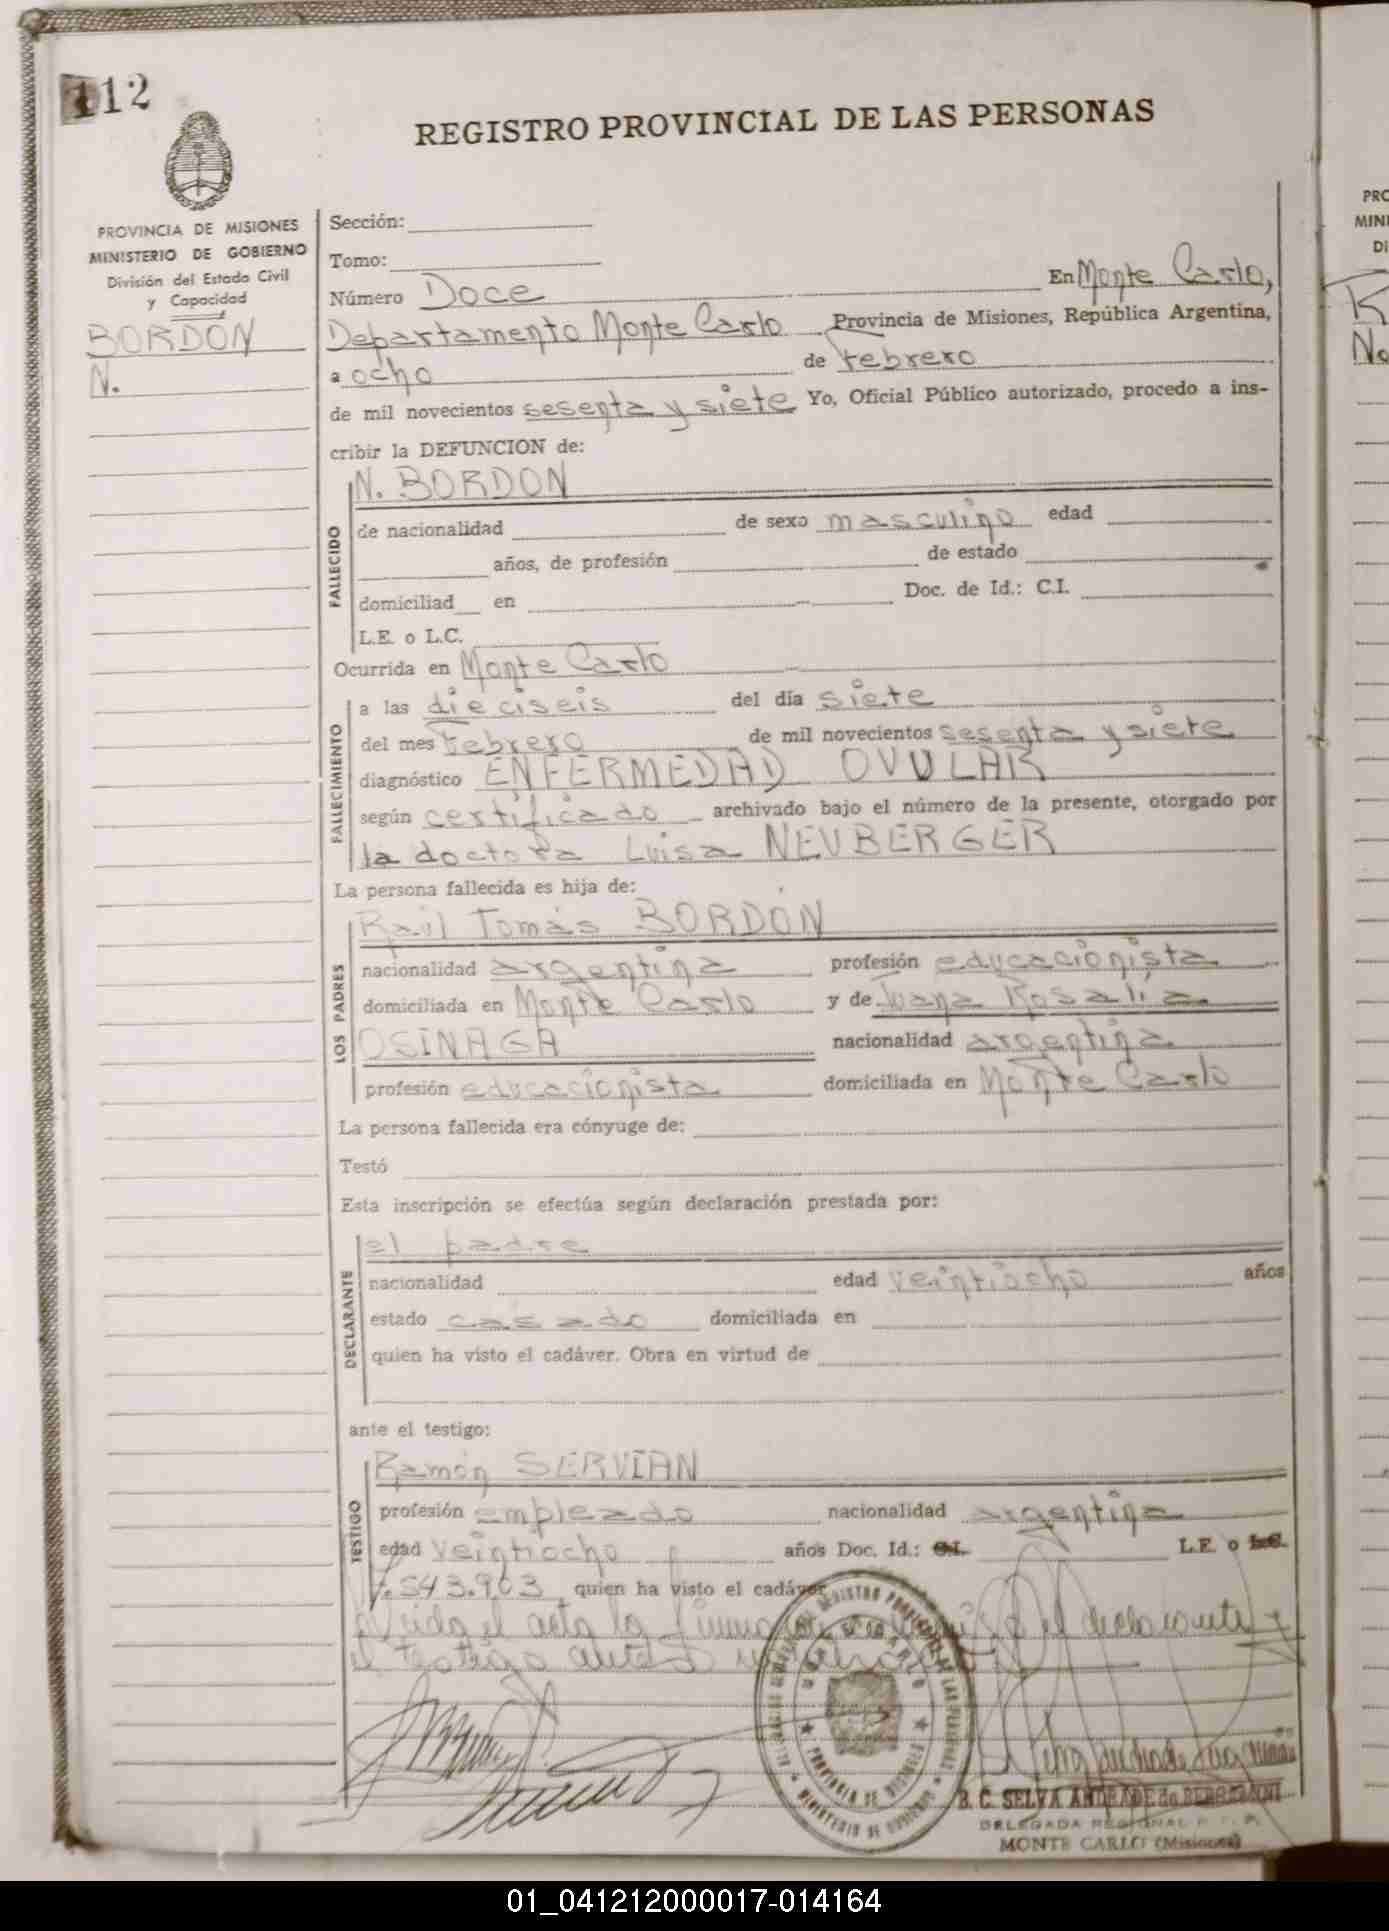 112
REGISTRO PROVINCIAL DE LAS PERSONAS
PROVINCIA DE MISIONES
MINISTERIO DE GOBIERNO
División del Estado Civil
y Capacidad
BORDON
N.
Sección:
Tomo:
Número Doce En Monte Carlo,
Departamento Monte Carlo Provincia de Misiones, República Argentina,
a ocho de febrero
de mil novecientos sesenta y siete Yo, Oficial Público autorizado, procedo a ins-
cribir la DEFUNCION de:
N. BORDON
FALLECIDO
de nacionalidad de sexo masculino edad
años, de profesión de estado
domiciliad en Doc. de Id.: C.I.
L.E. o L.C.
Ocurrida en Monte Carlo
FALLECIMIENTO
a las dieciseis del día siete
del mes febrero de mil novecientos sesenta y siete
diagnóstico ENFERMEDAD OVULAR
según certificado archivado bajo el número de la presente, otorgado por
la doctora Luisa NEUBERGER
La persona fallecida es hija de:
Raúl Tomás BORDÓN
LOS PADRES
nacionalidad argentina profesión educacionista
domiciliada en Monte Carlo y de Juana Rosalía
OSINAGA nacionalidad argentina
profesión educacionista domiciliada en Monte Carlo
La persona fallecida era cónyuge de:
Testó
Esta inscripción se efectúa según declaración prestada por:
el padre
DECLARANTE
nacionalidad edad veintiocho años
estado casado domiciliada en
quien ha visto el cadáver. Obra en virtud de
ante el testigo:
Ramón SERVIAN
TESTIGO
profesión empleado nacionalidad argentina
edad veintiocho años Doc. Id.: C.I. L.E. o L.C.
7.543.903 quien ha visto el cadáver
Leida el acta la firman el declarante y
el testigo ante
MONTE CARLO
PROVINCIA DE MISIONES
MINISTERIO DE GOBIERNO
B. C. SELVA ANDRADE de
DELEGADA REGIONAL R. P. P.
MONTE CARLO (Misiones)
PRO
MINI
DI
01_041212000017-014164